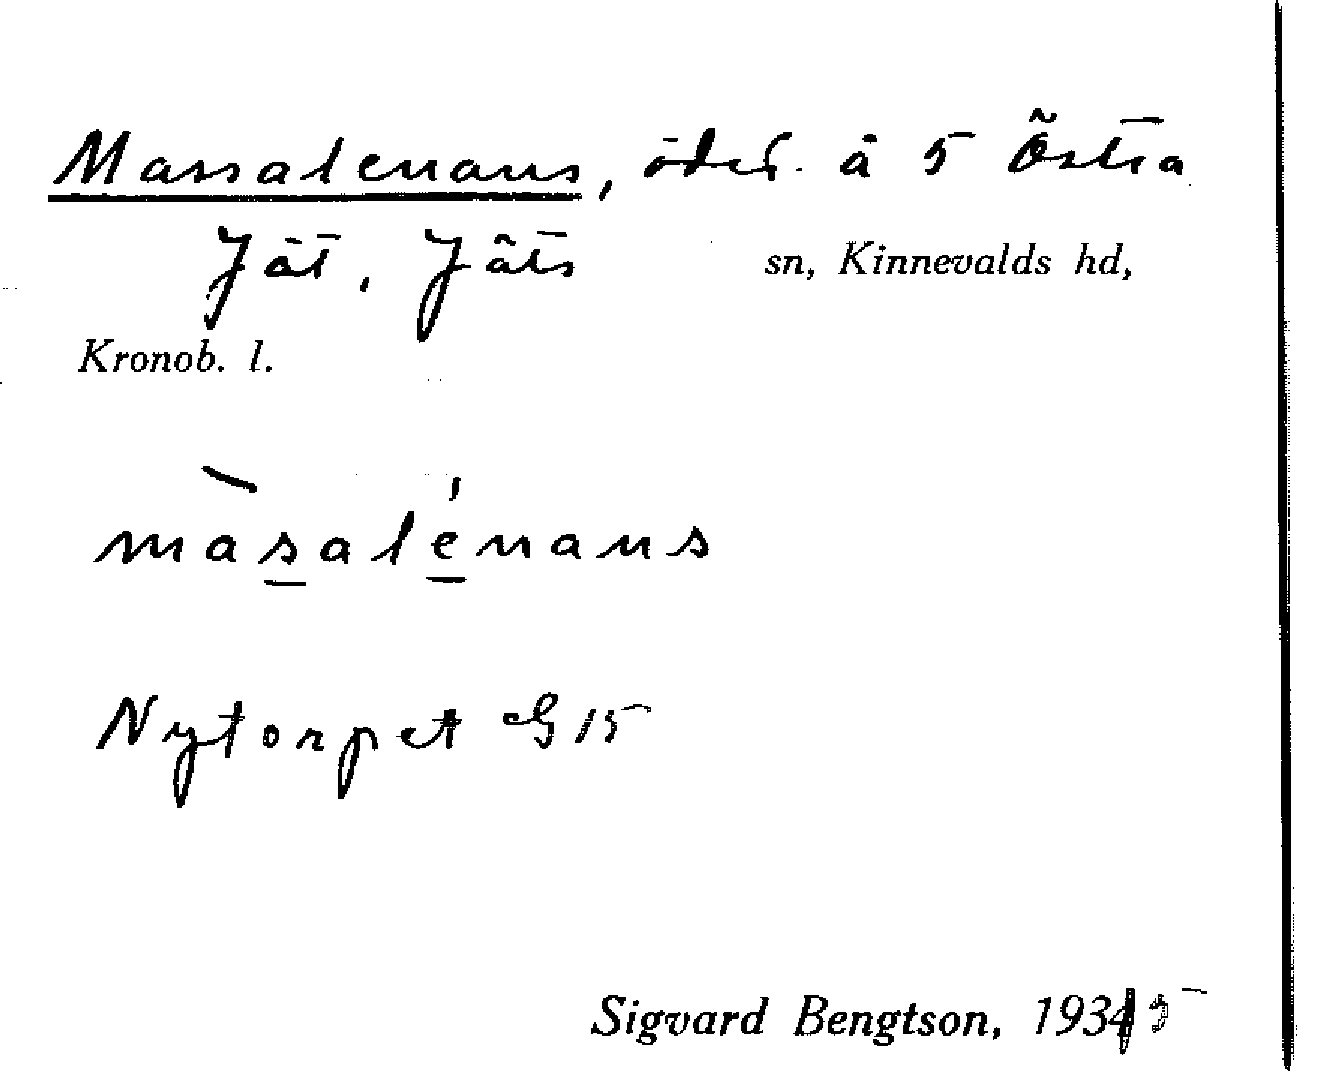 Massalenans, ödef. å 5 Östra
Jät, Jäts sn, Kinnevalds hd,
Kronob. l.
màsalénans
Nytorpet G 15
Sigvard Bengtson, 1935